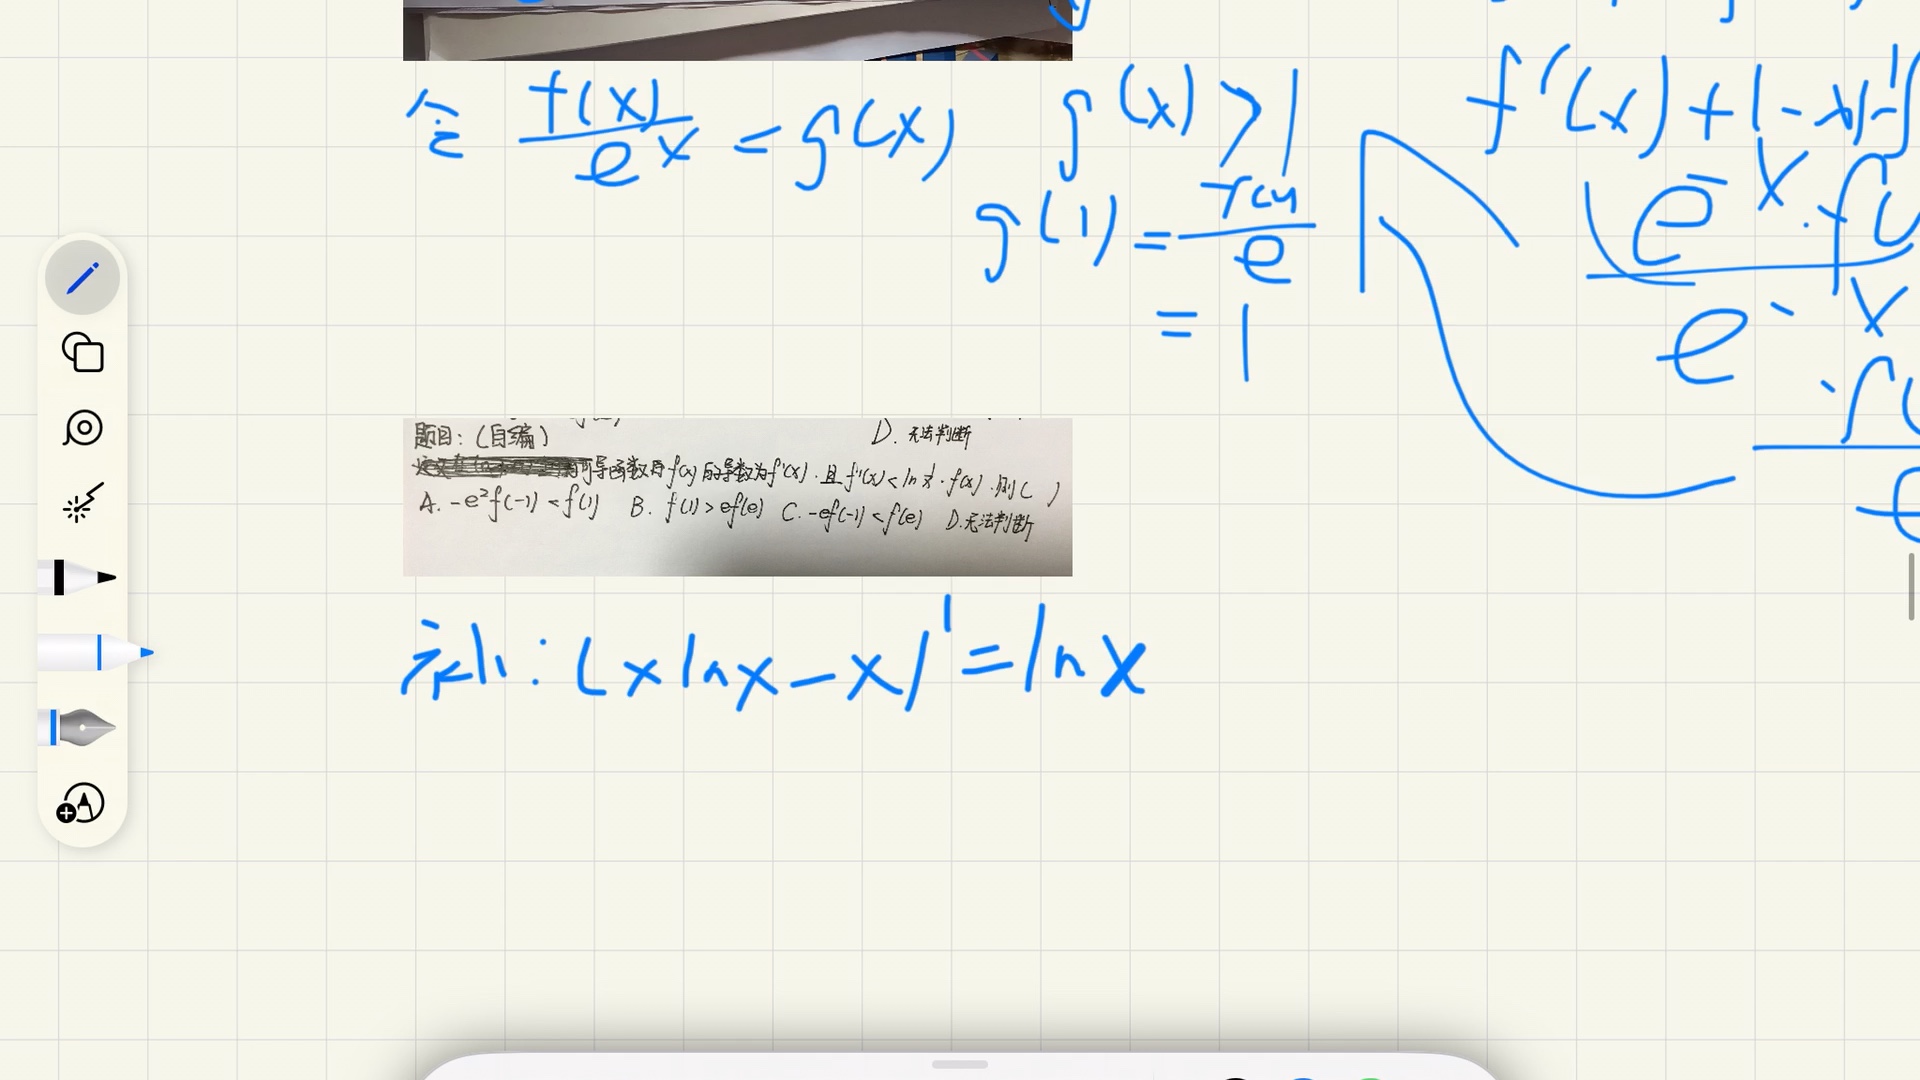 令 f(x)/e^x = g(x)
g(x) > 1
g(1) = f(1)/e
= 1
f'(x) + (1-x)
e^-x · f(
e^-x
题目：(自编)
D. 无法判断
可导函数 f(x) 的导数为 f'(x). 且 f'(x) < ln · f(x). 则( )
A. -e²f(-1) < f(1) B. f(1) > ef(e) C. -ef(-1) < f(e) D. 无法判断
补: (x ln x - x)' = ln x